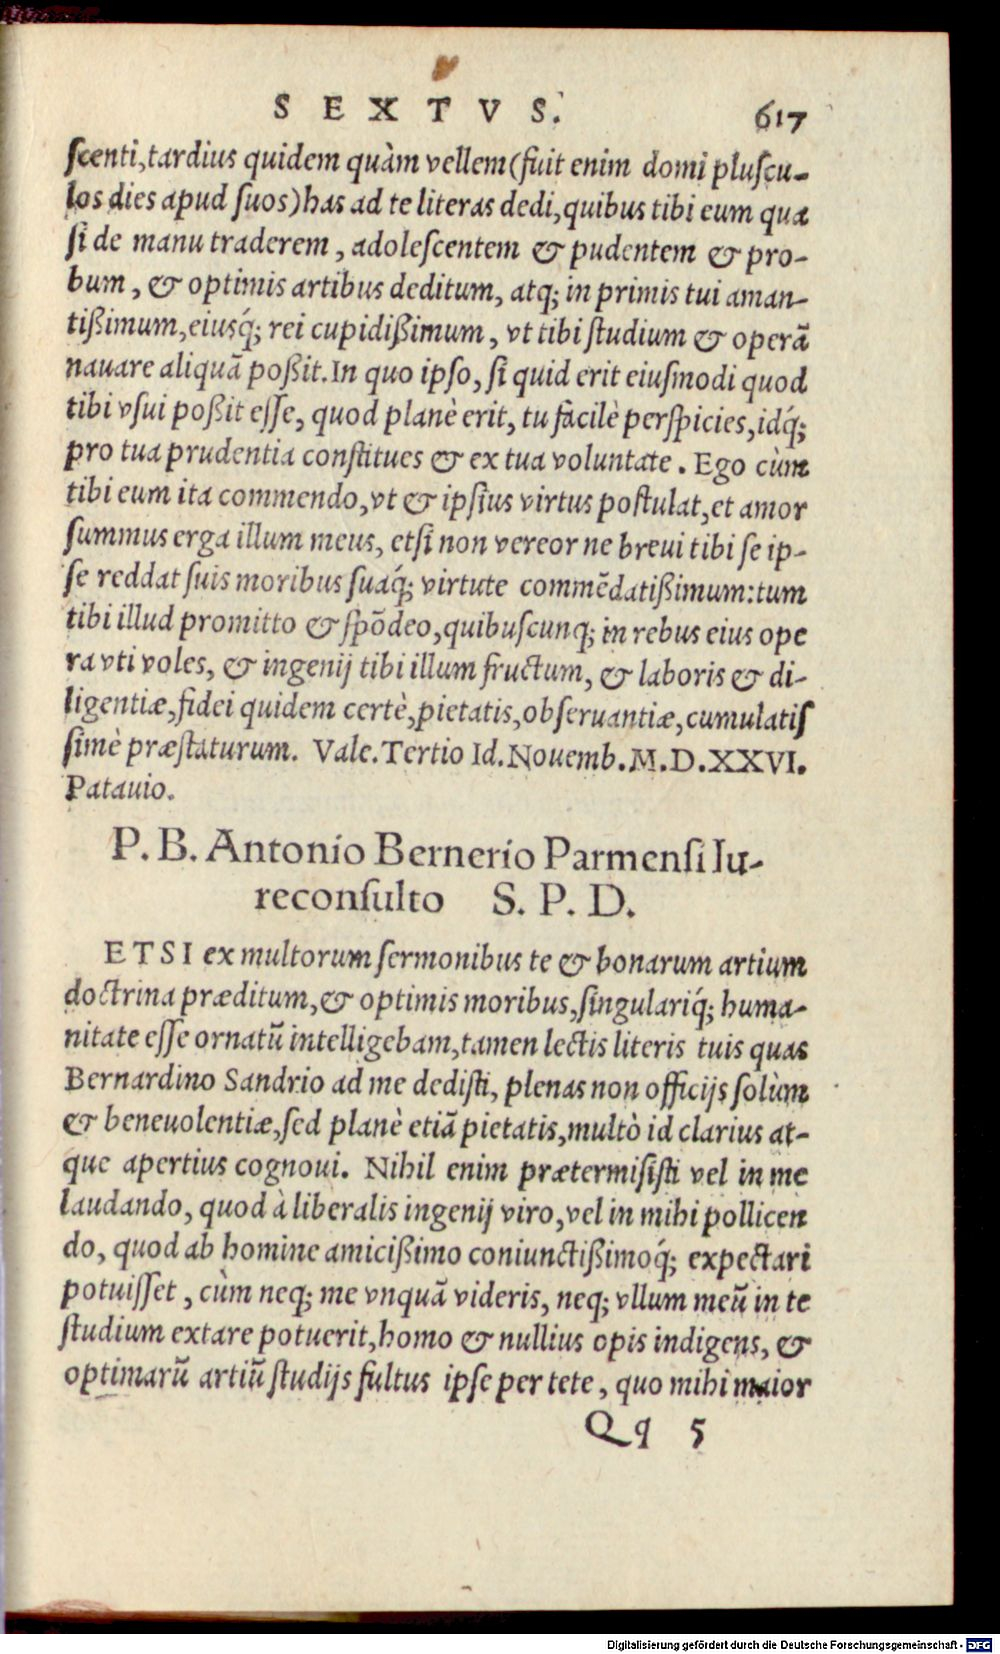 SEXTVS. 617
scenti, tardius quidem quàm vellem (fuit enim domi pluscu-
los dies apud suos) has ad te literas dedi, quibus tibi eum qua
si de manu traderem, adolescentem & pudentem & pro-
bum, & optimis artibus deditum, atq; in primis tui aman-
tißimum, eiusq́; rei cupidißimum, vt tibi studium & operā
nauare aliquā poßit. In quo ipso, si quid erit eiusmodi quod
tibi vsui poßit esse, quod planè erit, tu facilè perspicies, idq́;
pro tua prudentia constitues & ex tua voluntate. Ego cùm
tibi eum ita commendo, vt & ipsius virtus postulat, et amor
summus erga illum meus, etsi non vereor ne breui tibi se ip-
se reddat suis moribus suaq́; virtute commēdatißimum: tum
tibi illud promitto & spōdeo, quibuscunq; in rebus eius ope
ra vti voles, & ingenij tibi illum fructum, & laboris & di-
ligentiæ, fidei quidem certè, pietatis, obseruantiæ, cumulatis
simè præstaturum. Vale. Tertio Id. Nouemb. M. D. XXVI.
Patauio.
P. B. Antonio Bernerio Parmensi Iu-
reconsulto S. P. D.
ETSI ex multorum sermonibus te & bonarum artium
doctrina præditum, & optimis moribus, singulariq́; huma-
nitate esse ornatū intelligebam, tamen lectis literis tuis quas
Bernardino Sandrio ad me dedisti, plenas non officijs solùm
& beneuolentiæ, sed planè etiā pietatis, multò id clarius at-
que apertius cognoui. Nihil enim prætermisisti vel in me
laudando, quod à liberalis ingenij viro, vel in mihi pollicen
do, quod ab homine amicißimo coniunctißimoq́; expectari
potuisset, cùm neq; me vnquā videris, neq; vllum meū in te
studium extare potuerit, homo & nullius opis indigens, &
optimarū artiū studijs fultus ipse per tete, quo mihi maior
Qq 5
Digitalisierung gefördert durch die Deutsche Forschungsgemeinschaft - DFG